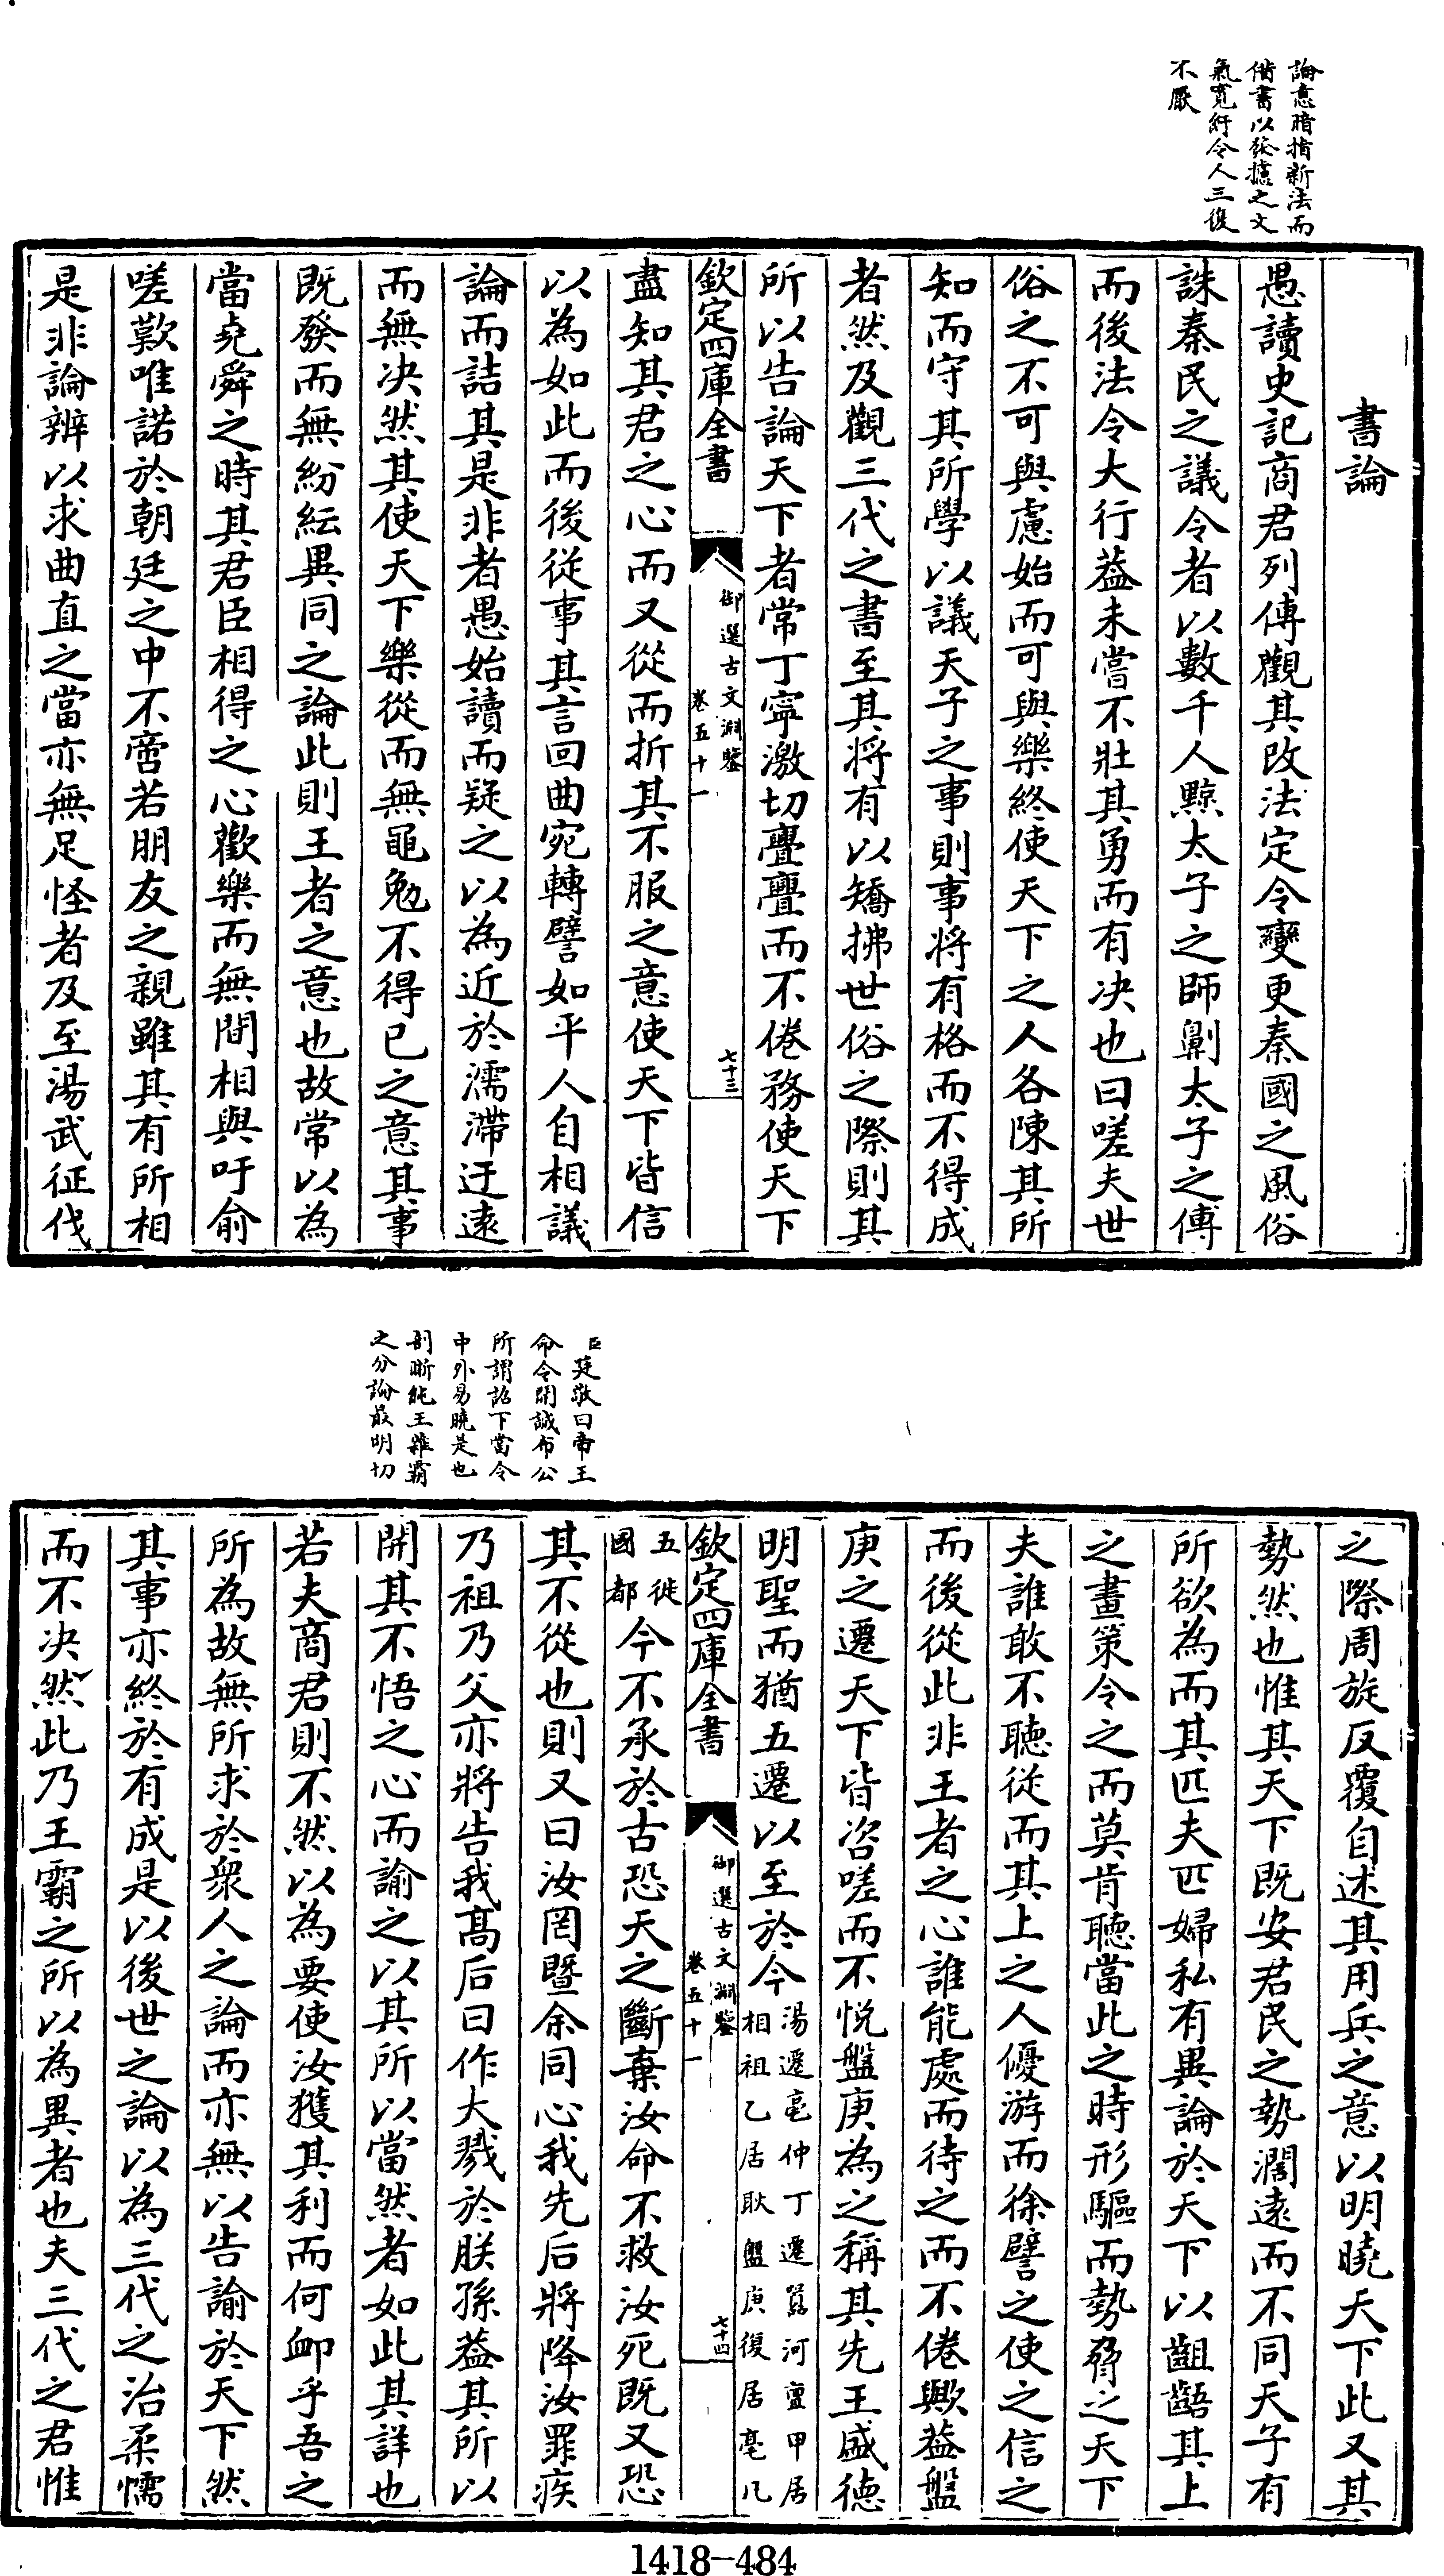 論意暗指新法而
借書以發攄之文
氣寬紆令人三復
不厭
書論
愚讀史記商君列傳觀其改法定令變更秦國之風俗
誅秦民之議令者以數千人黥太子之師劓太子之傅
而後法令大行葢未嘗不壯其勇而有决也曰嗟夫世
俗之不可與慮始而可與樂終使天下之人各陳其所
知而守其所學以議天子之事則事將有格而不得成
者然及觀三代之書至其將有以矯拂世俗之際則其
所以告論天下者常丁寜激切亹亹而不倦務使天下
欽定四庫全書
御選古文淵鑒
卷五十一
七十三
盡知其君之心而又從而折其不服之意使天下皆信
以為如此而後從事其言回曲宛轉譬如平人自相議
論而詰其是非者愚始讀而疑之以為近於濡滯迂逺
而無决然其使天下樂從而無黽勉不得已之意其事
既發而無紛紜異同之論此則王者之意也故常以為
當堯舜之時其君臣相得之心歡樂而無間相與吁俞
嗟歎唯諾於朝廷之中不啻若朋友之親雖其有所相
是非論辨以求曲直之當亦無足怪者及至湯武征伐
臣廷敬曰帝王
命令開誠布公
所謂詔下當令
中外易曉是也
剖晰純王雜霸
之分論最明切
之際周旋反覆自述其用兵之意以明曉天下此又其
勢然也惟其天下既安君民之勢濶逺而不同天子有
所欲為而其匹夫匹婦私有異論於天下以齟齬其上
之畫策令之而莫肯聽當此之時形驅而勢脅之天下
夫誰敢不聽從而其上之人優游而徐譬之使之信之
而後從此非王者之心誰能處而待之而不倦歟葢盤
庚之遷天下皆咨嗟而不悅盤庚為之稱其先王盛德
明聖而猶五遷以至於今湯遷亳仲丁遷囂河亶甲居相祖乙居耿盤庚復居亳凡
欽定四庫全書
御選古文淵鑒
卷五十一
七十四
五徙國都今不承於古恐天之斷棄汝命不救汝死既又恐
其不從也則又曰汝罔暨余同心我先后將降汝罪疾
乃祖乃父亦將告我髙后曰作大戮於朕孫葢其所以
開其不悟之心而諭之以其所以當然者如此其詳也
若夫商君則不然以為要使汝獲其利而何卹乎吾之
所為故無所求於衆人之論而亦無以告諭於天下然
其事亦終於有成是以後世之論以為三代之治柔懦
而不决然此乃王霸之所以為異者也夫三代之君惟
1418-484